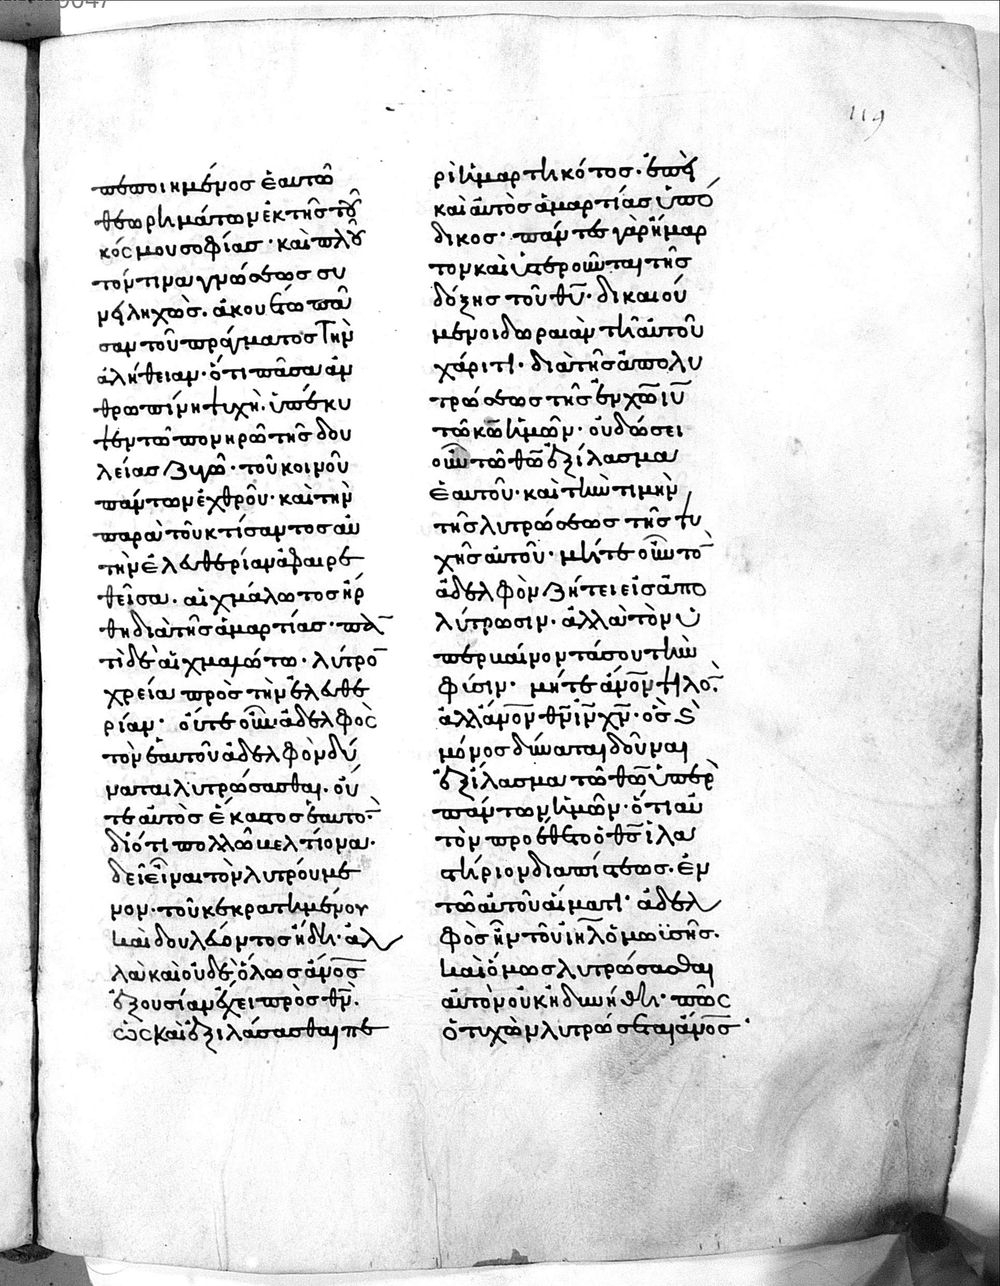 119
πεποιημένος ἑαυτῶ
θεωρημάτων ἐκ τῆς τοῦ
κόσμου σοφίας· καὶ πλοῦ
τόν τινα γνώσεως συ
νειληχὼς. ἀκουέτω πᾶ
σαν τοῦ πράγματος τὴν
ἀλήθειαν· ὅτι πᾶσα ἀν
θρωπίνη ψυχὴ. ὑπέκυ
ψεν τῶ πονηρῶ τῆς δου
λείας ζυγῶ· τοῦ κοινοῦ
πάντων ἐχθροῦ· καὶ τὴν
παρὰ τοῦ κτίσαντος αὐ
τὴν ἐλευθερίαν ἀφαιρε
θεῖσα. αἰχμάλωτος ἤρ
θη διὰ τῆς ἁμαρτίας· παν
τὶ δὲ αἰχμαλώτω· λύτρο
χρεία πρὸς τὴν ἐλευθε
ρίαν· οὔτε οὖν ἀδελφὸς
τὸν ἑαυτοῦ ἀδελφὸν δύ
ναται λυτρώσασθαι. οὔ
τε αὐτὸς ἕκαστος ἑαυτο·
διότι πολλῶ βελτίονα·
δεῖ εἶναι τὸν λυτρούμε
νον· τοῦ κεκρατημένου
καὶ δουλεύοντος ἤδη· ἀλ
λὰ καὶ οὐδὲ ὅλως ἀνος
ἐξουσίαν ἔχει πρὸς θν.
ὡς καὶ ἐξιλάσασθαι πε
ρὶ ἡμαρτηκότος. ἐπεὶ
καὶ αὐτὸς ἁμαρτίας ὑπό
δικος· πάντες γὰρ ἥμαρ
τον καὶ ὑστεροῦνται τῆς
δόξης τοῦ θυ· δικαιού
μενοι δωρεὰν τῆ αὐτοῦ
χάριτι· διὰ τῆς ἀπολυ
τρώσεως τῆς ἐν χω ιυ
τῶ κω ἡμῶν· οὐ δώσει
οὖν τῶ θω ἐξίλασμα
ἑαυτοῦ· καὶ τὴν τιμὴν
τῆς λυτρώσεως τῆς ψυ
χῆς αὐτοῦ· μήτε οὖν το
ἀδελφὸν ζήτει εἰς ἀπο
λύτρωσιν. ἀλλὰ τὸν ὑ
περβαίνοντά σου τὴν
φύσιν· μήτε ἀνον ψιλο·
ἀλλ' ἀνον θν ιν χν· ὃς ς
μόνος δύναται δοῦναι
ἐξίλασμα τῶ θω ὑπὲρ
πάντων ἡμῶν· ὅτι αὐ
τὸν προέθετο ὁ θς ἱλα
στήριον διὰ πίστεως. ἐν
τῶ αὐτοῦ αἵματι· ἀδελ
φὸς ἦν τοῦ ιηλ ὁ μωϊσῆς.
καὶ ὅμως λυτρώσασθαι
αὐτὸν οὐκ ἠδυνήθη· πῶς
ὁ τυχὼν λυτρώσεται ἀνος·